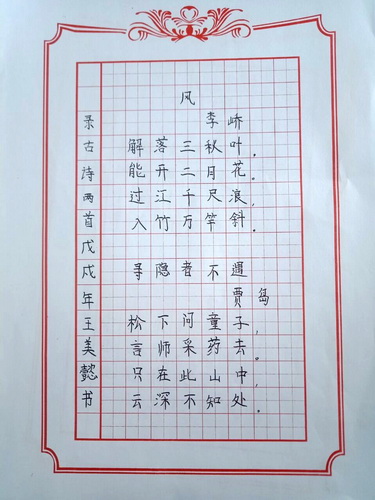 风
李峤
解落三秋叶，
能开二月花。
过江千尺浪，
入竹万竿斜。
寻隐者不遇
贾岛
松下问童子，
言师采药去。
只在此山中，
云深不知处。
录古诗两首戊戌年王美懿书